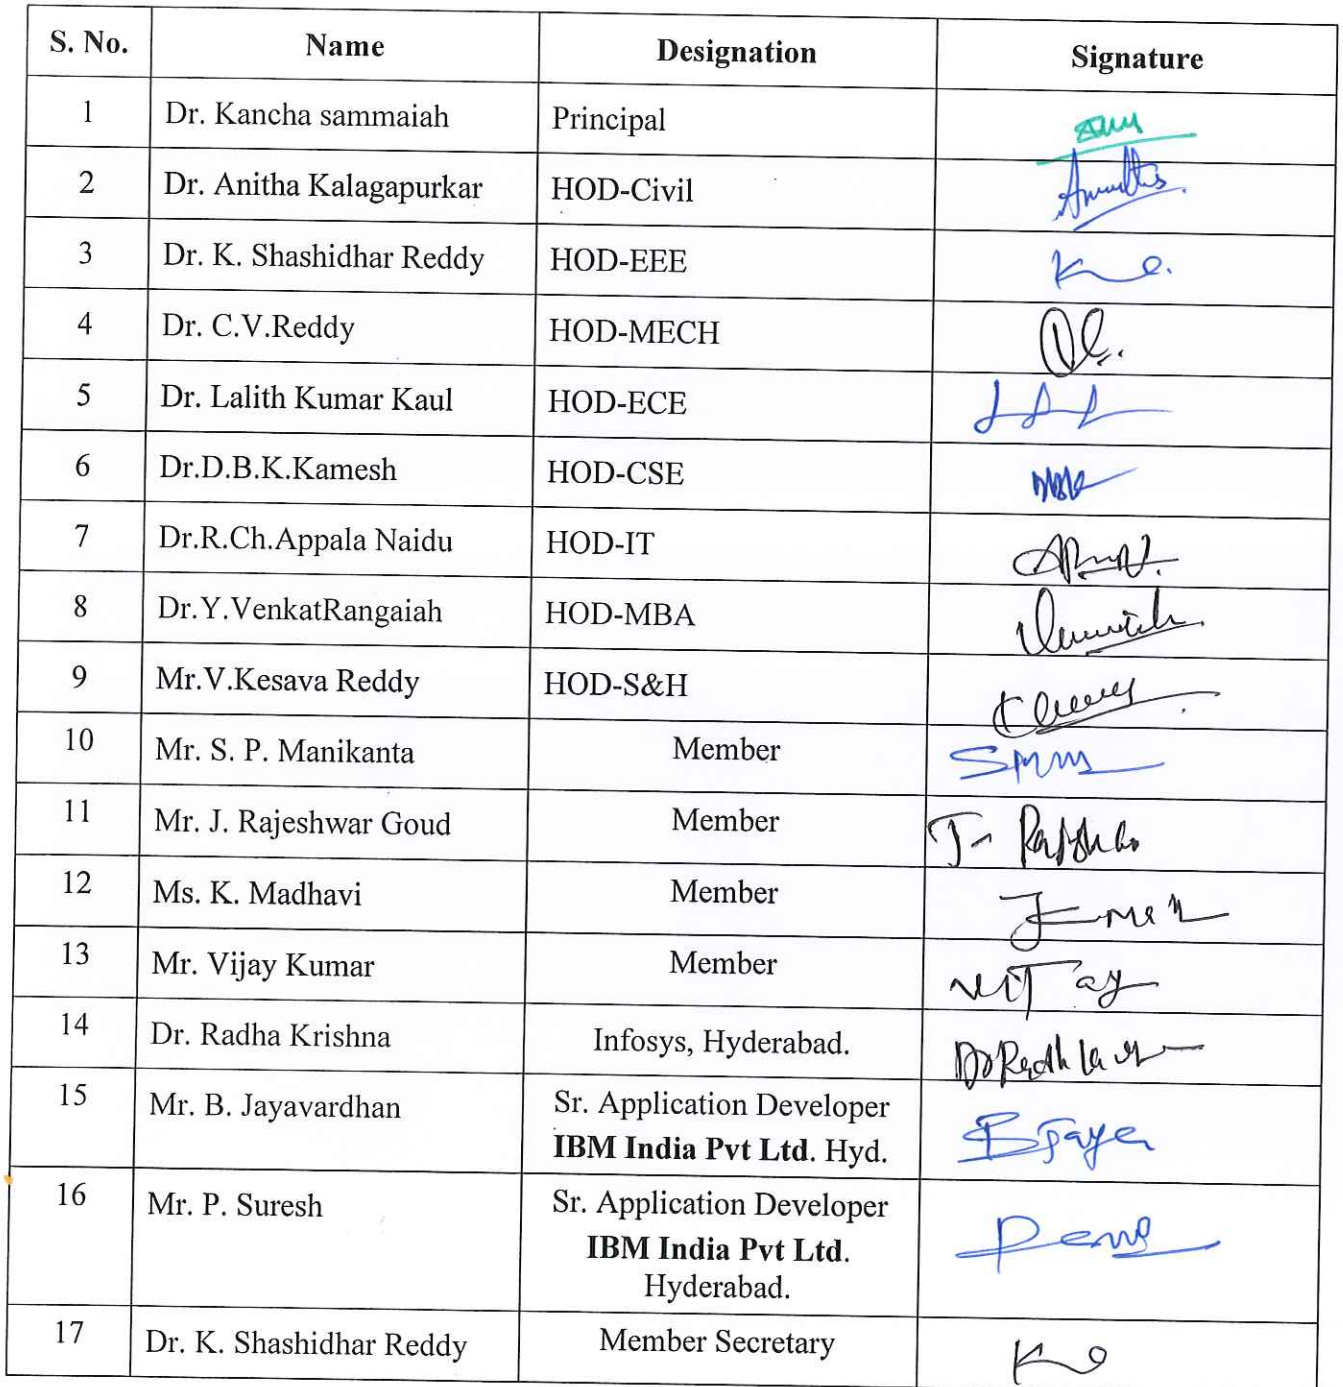 S. No. Name Designation Signature
1 Dr. Kancha sammaiah Principal
2 Dr. Anitha Kalagapurkar HOD-Civil
3 Dr. K. Shashidhar Reddy HOD-EEE
4 Dr. C.V.Reddy HOD-MECH
5 Dr. Lalith Kumar Kaul HOD-ECE
6 Dr.D.B.K.Kamesh HOD-CSE
7 Dr.R.Ch.Appala Naidu HOD-IT
8 Dr.Y.VenkatRangaiah HOD-MBA
9 Mr.V.Kesava Reddy HOD-S&H
10 Mr. S. P. Manikanta Member
11 Mr. J. Rajeshwar Goud Member
12 Ms. K. Madhavi Member
13 Mr. Vijay Kumar Member
14 Dr. Radha Krishna Infosys, Hyderabad.
15 Mr. B. Jayavardhan Sr. Application Developer
IBM India Pvt Ltd. Hyd.
16 Mr. P. Suresh Sr. Application Developer
IBM India Pvt Ltd.
Hyderabad.
17 Dr. K. Shashidhar Reddy Member Secretary